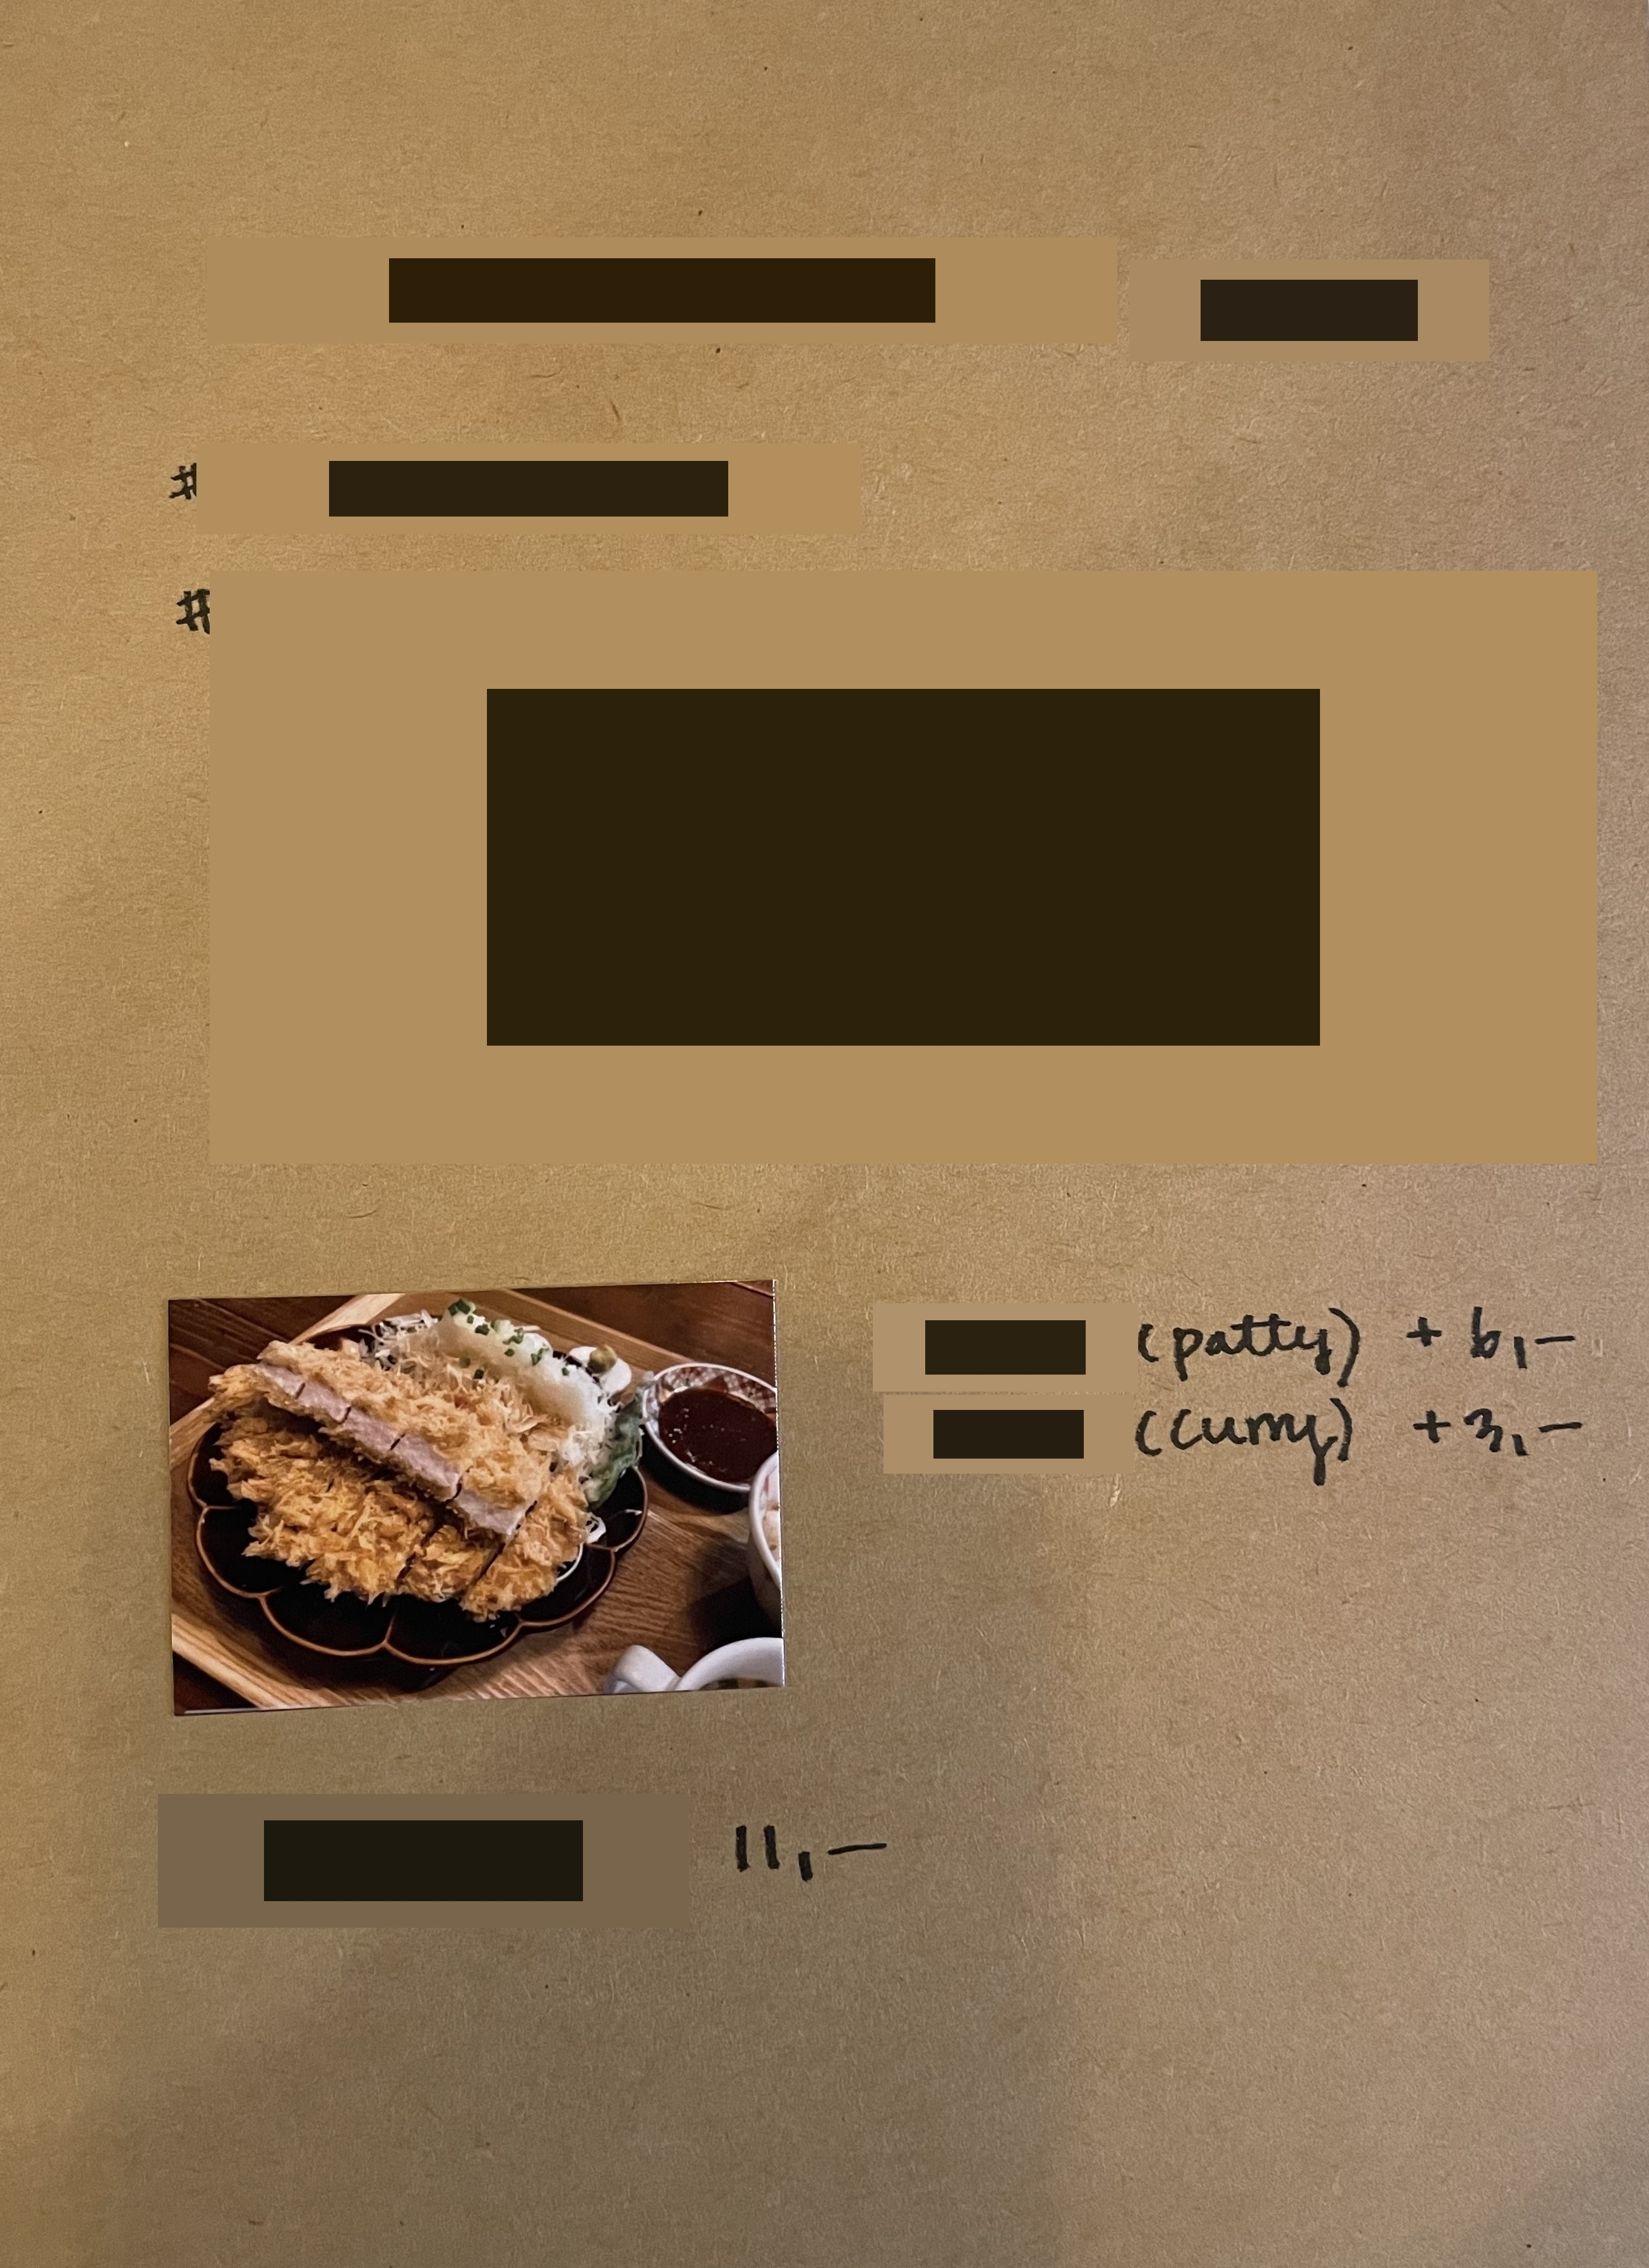 #
#
(patty) + 6,-
(curry) + 3,-
11,-